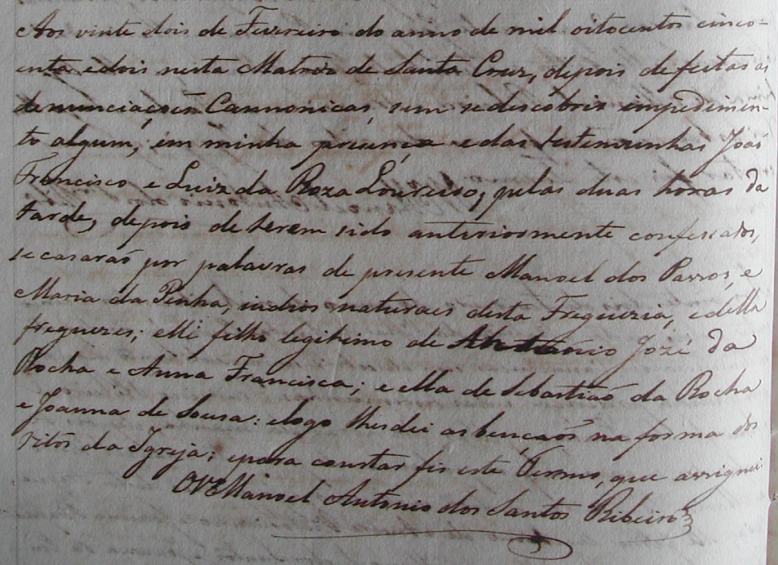 Aos vinte dois de Fevereiro do anno de mil oitocentos cinco-
enta e dois nesta Matriz de Santa Cruz, depois de feitas as
denunciaçoēs Cannonicas, sem se descobrir impedimen-
to algum, em minha presença e das testemunhas João
Francisco e Luiz da Roza Loureiro, pelas duas horas da
tarde, depois de terem sido anteriormente confessados,
se casaraō por palavras de presente Manoel dos Passos, e
Maria da Penha, indios naturaes desta Freguezia, e della
freguezes; elle filho legitimo de Antonio Jozé da
Rocha e Anna Francisca; e ella de Sebastiaō da Rocha
e Joanna de Sousa: e logo lhes dei as bençaōs na forma dos
ritos da Igreja: e para constar fis este Termo, que assignei
O Vig.º Manoel Antonio dos Santos Ribeiro